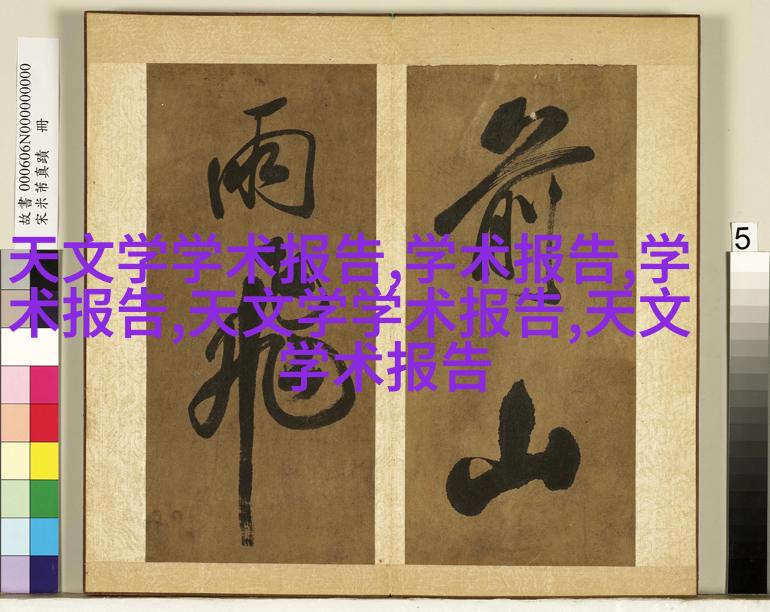 天文学学术报告,学术报告,学
术报告,天文学学术报告,天文
学术报告
前山
雨
故書 000606N000000000
宋米芾真蹟 冊
5